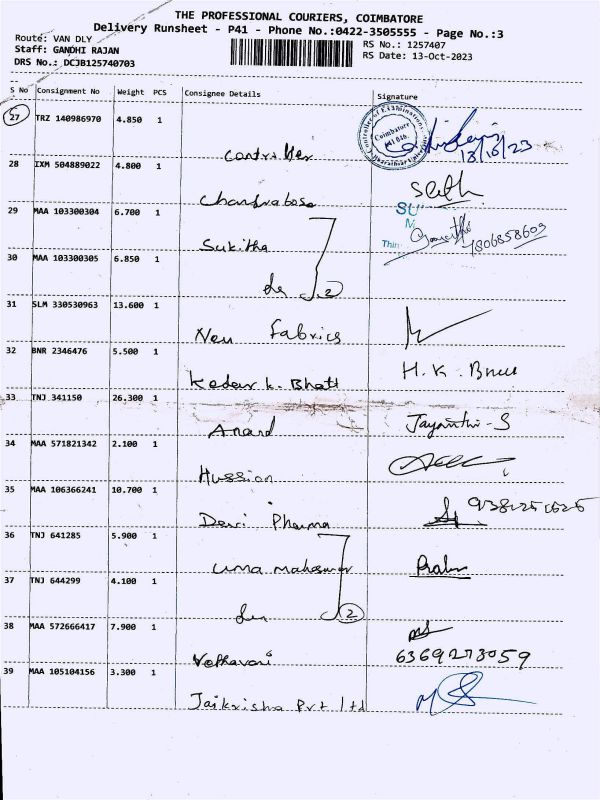 THE PROFESSIONAL COURIERS, COIMBATORE
Delivery Runsheet - P41 - Phone No.:0422-3505555 - Page No.:3
Route: VAN DLY
RS No.: 1257407
Staff: GANDHI RAJAN
RS Date: 13-Oct-2023
DRS No.: DCJB125740703
S No Consignment No Weight PCS Consignee Details Signature
27 TRZ 140986970 4.850 1
28 IXM 504889022 4.800 1
Chandrabose
29 MAA 103300304 6.700 1
Sukitha
30 MAA 103300305 6.850 1
do 2
31 SLM 330530963 13.600 1
New Fabrics
32 BNR 2346476 5.500 1
Kedar k. Bhatt H.K.
33 TNJ 341150 26.300 1
Anand Jayanthi-S
34 MAA 571821342 2.100 1
Hussion
35 MAA 106366241 10.700 1
Devi Pharma
36 TNJ 641285 5.900 1
uma maheswar
37 TNJ 644299 4.100 1
do 2
38 MAA 572666417 7.900 1
6369278059
39 MAA 105104156 3.300 1
Jaikrisha Pvt ltd